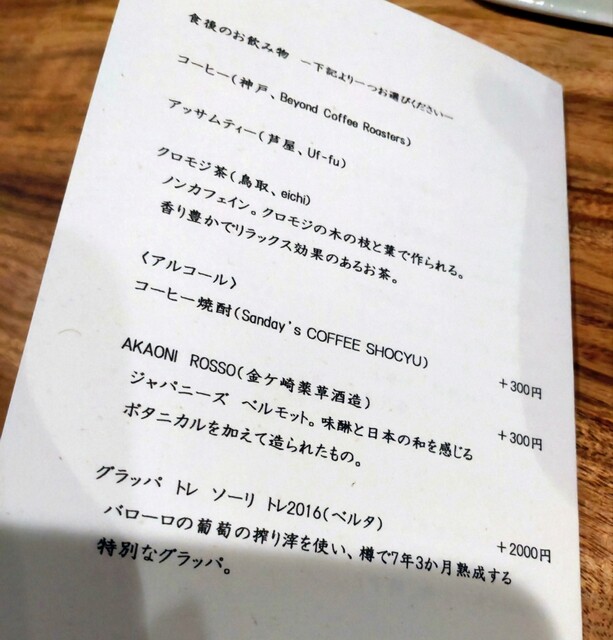 食後のお飲み物　ー下記より一つお選びくださいー
コーヒー(神戸、Beyond Coffee Roasters)
アッサムティー(芦屋、Uf-fu)
クロモジ茶(鳥取、eichi)
ノンカフェイン。クロモジの木の枝と葉で作られる。
香り豊かでリラックス効果のあるお茶。
〈アルコール〉
コーヒー焼酎(Sanday's COFFEE SHOCYU)
+300円
AKAONI ROSSO(金ケ崎薬草酒造)
+300円
ジャパニーズ ベルモット。味醂と日本の和を感じる
ボタニカルを加えて造られたもの。
グラッパ トレ ソーリ トレ2016(ベルタ)
+2000円
バローロの葡萄の搾り滓を使い、樽で7年3か月熟成する
特別なグラッパ。